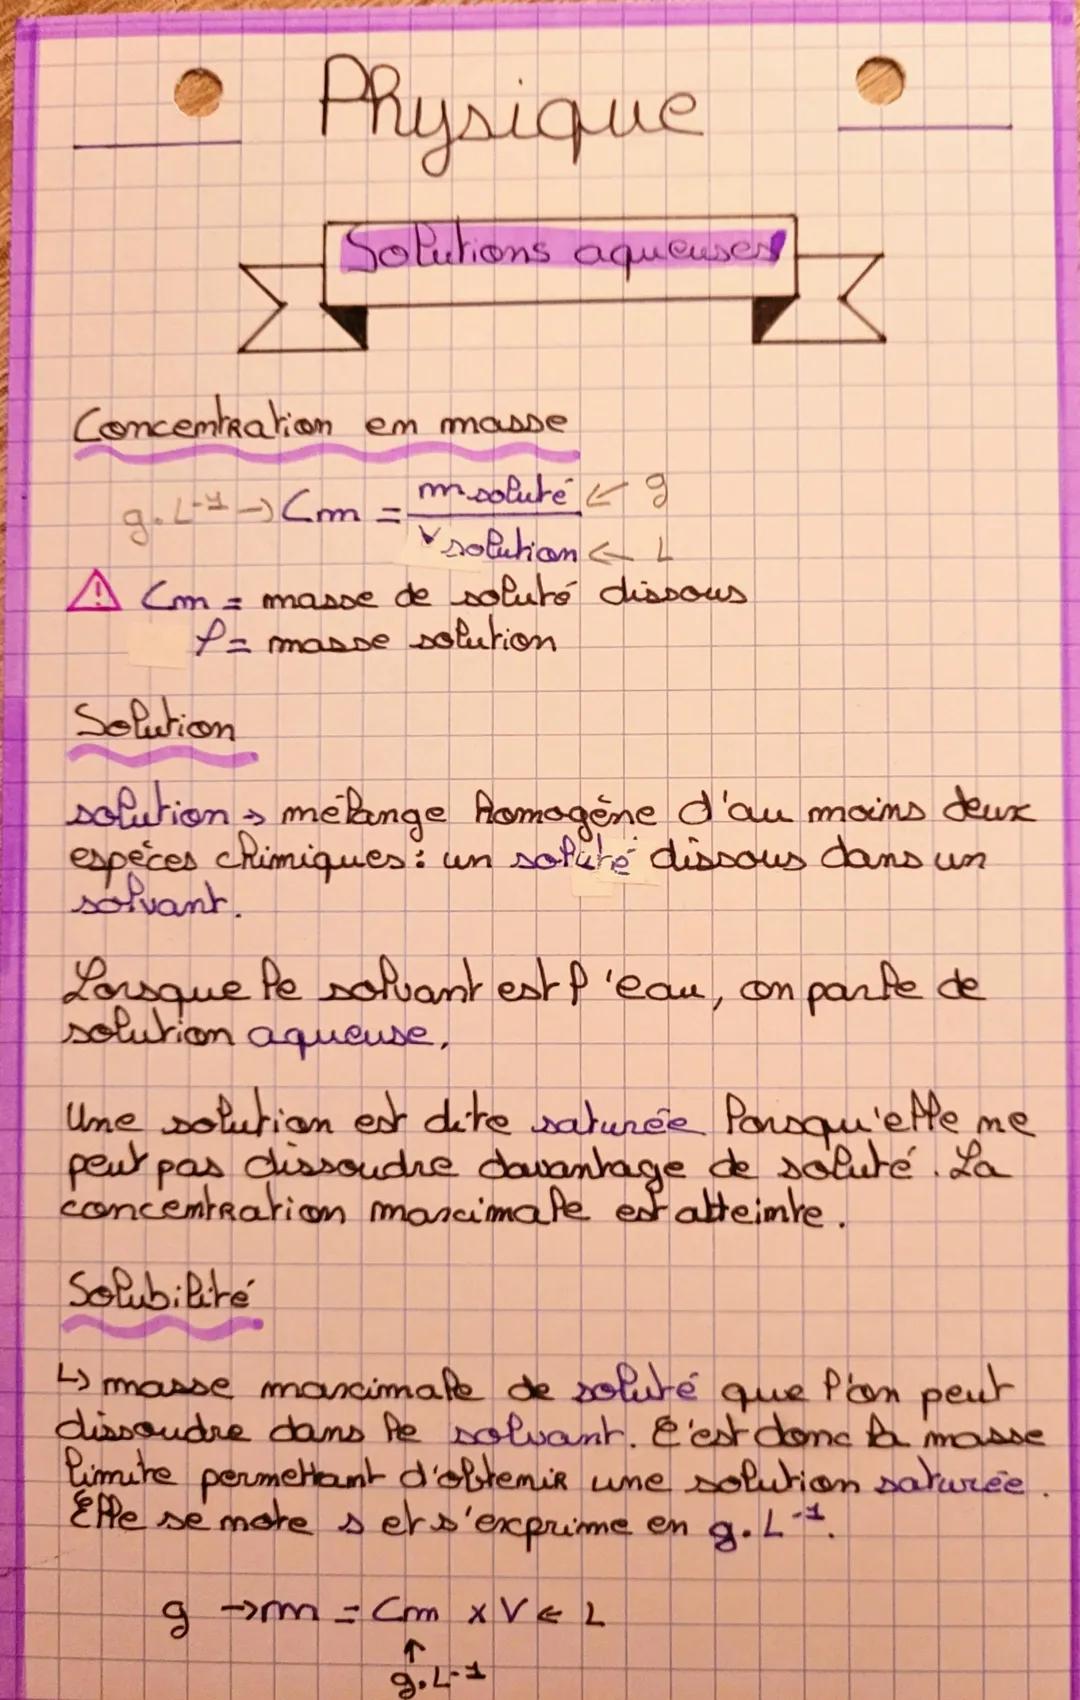 Physique
Solutions aqueuses
Concentration en masse
g.L⁻¹ → Cm = m soluté / V solution ← g
← L
⚠ Cm = masse de soluté dissous
ρ = masse solution
Solution
solution → mélange homogène d'au moins deux
espèces chimiques : un soluté dissous dans un
solvant.
Lorsque le solvant est l'eau, on parle de
solution aqueuse.
Une solution est dite saturée lorsqu'elle ne
peut pas dissoudre davantage de soluté. La
concentration maximale est atteinte.
Solubilité
↳ masse maximale de soluté que l'on peut
dissoudre dans le solvant. C'est donc la masse
limite permettant d'obtenir une solution saturée.
Elle se note s et s'exprime en g.L⁻¹.
g → m = Cm x V ← L
↑
g.L⁻¹